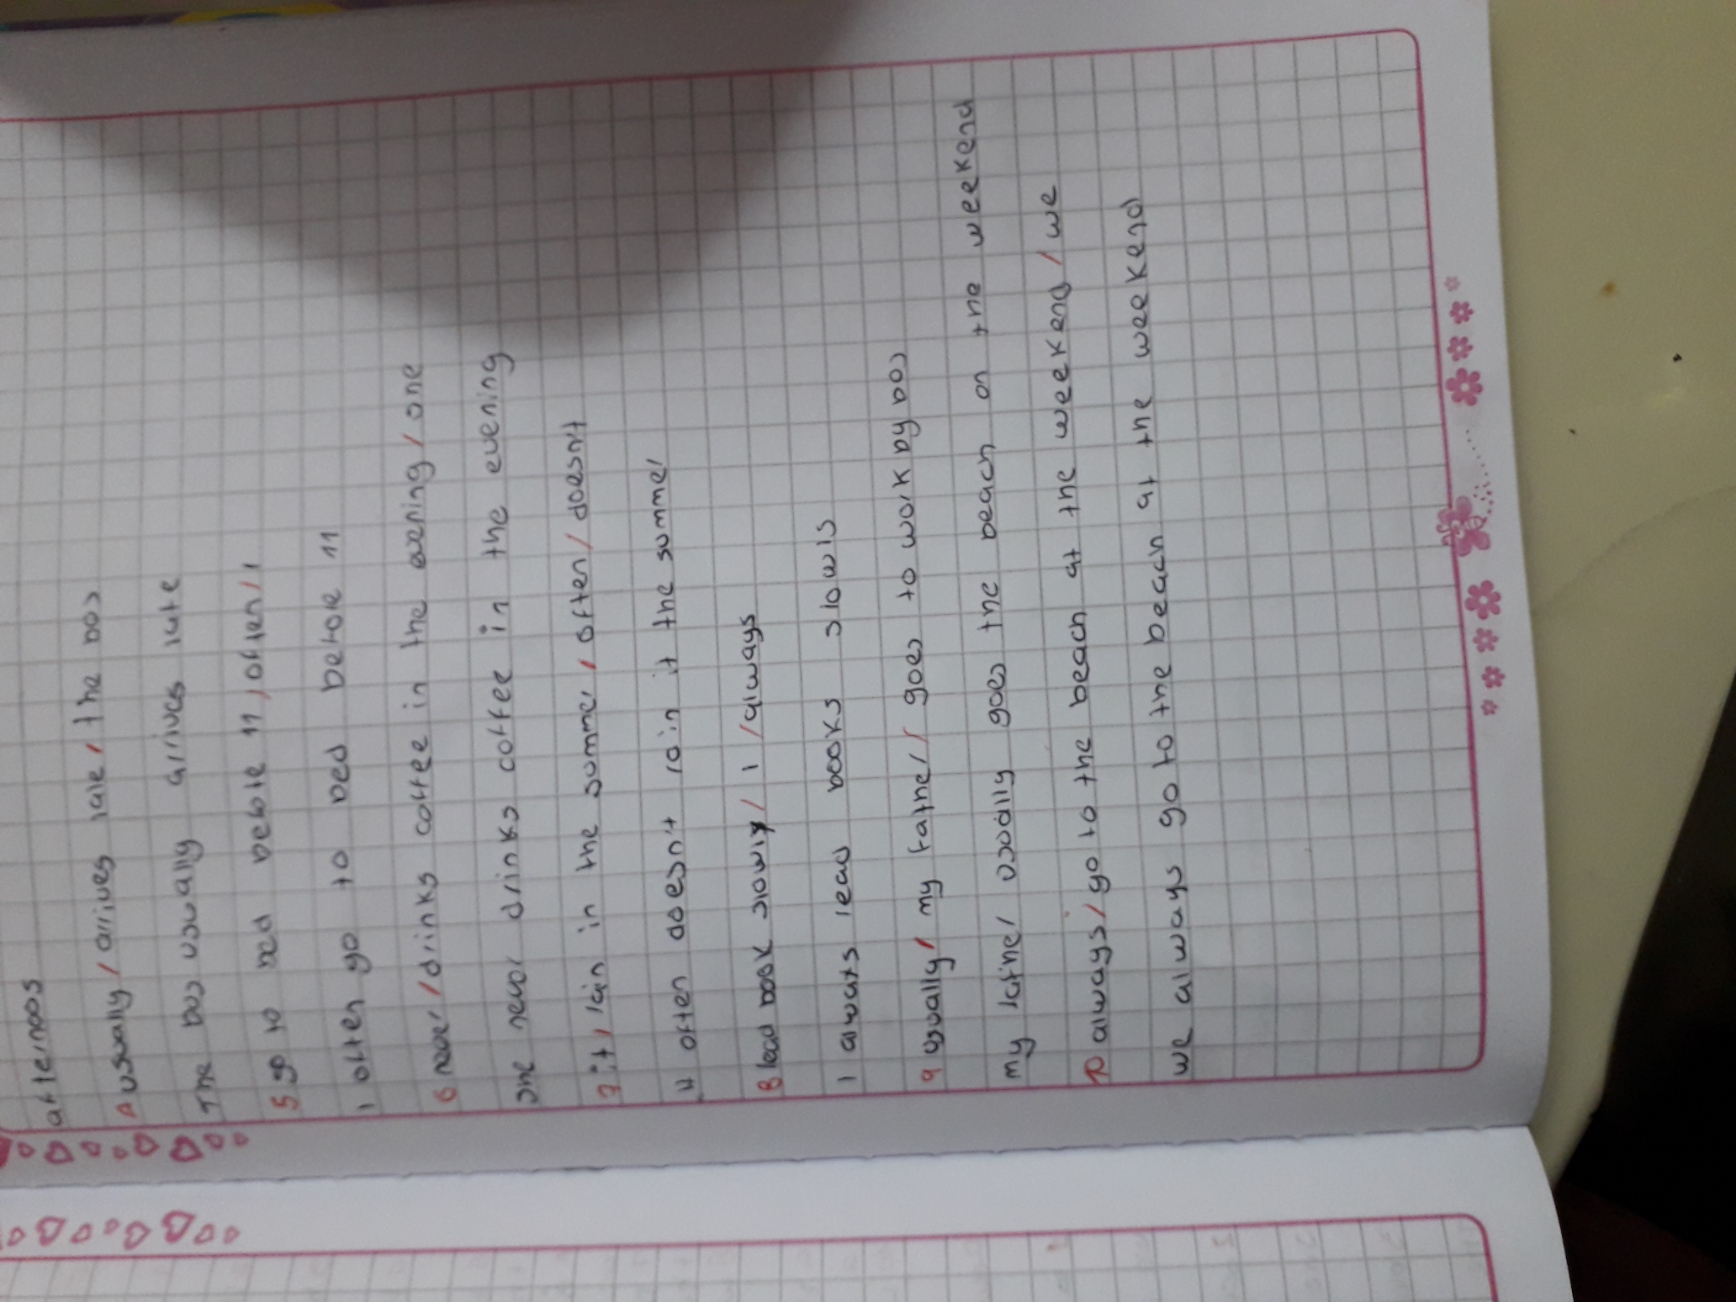 afternoos
4 usually / arrives late / the bos
The bos usually arrives late
5 go to bed before 11 / often / I
I often go to bed before 11
6 never / drinks coffee in the evening / one
she never drinks coffee in the evening
7 it / rain in the summer / often / doesn't
it often doesn't rain it the summer
8 read book slowly / I / always
I always read books slowls
9 usually / my father / goes to work by bos
my father usually goes the beach on the weekend
10 always / go to the beach at the weekend / we
we always go to the beach at the weekend